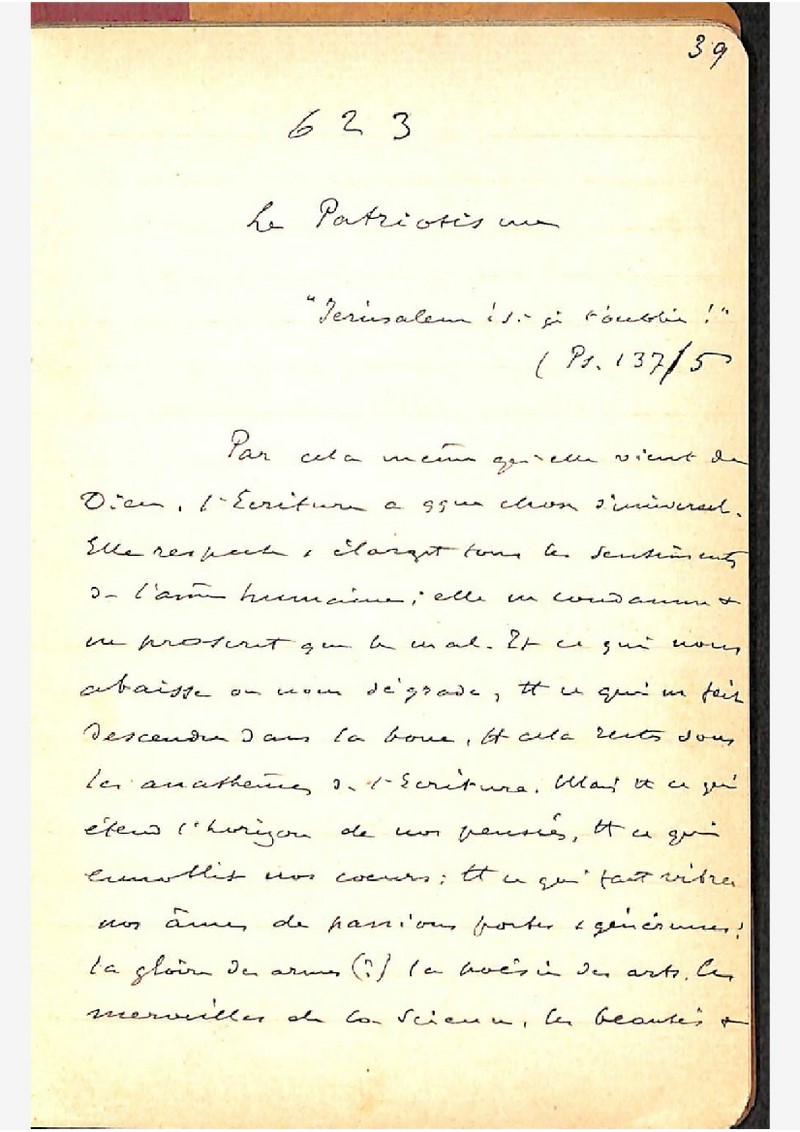 39
623
Le Patriotisme
"Jérusalem ! si je t'oublie !"
(Ps. 137/5
Par cela même qu'elle vient de
Dieu, l'Ecriture a qque chose d'universel.
Elle respecte & élargit tous les sentiments
de l'âme humaine; elle ne condamne &
ne proscrit que le mal. Et ce qui nous
abaisse ou nous dégrade, tt ce qui ns fait
descendre dans la boue, tt cela reste sous
les anathèmes de l'Ecriture. Mais tt ce qui
étend l'horizon de nos pensées, tt ce qui
ennoblit nos coeurs; tt ce qui fait vibrer
nos âmes de passions fortes & généreuses;
la gloire des armes (?) la poésie des arts. les
merveilles de la Science, les beautés &